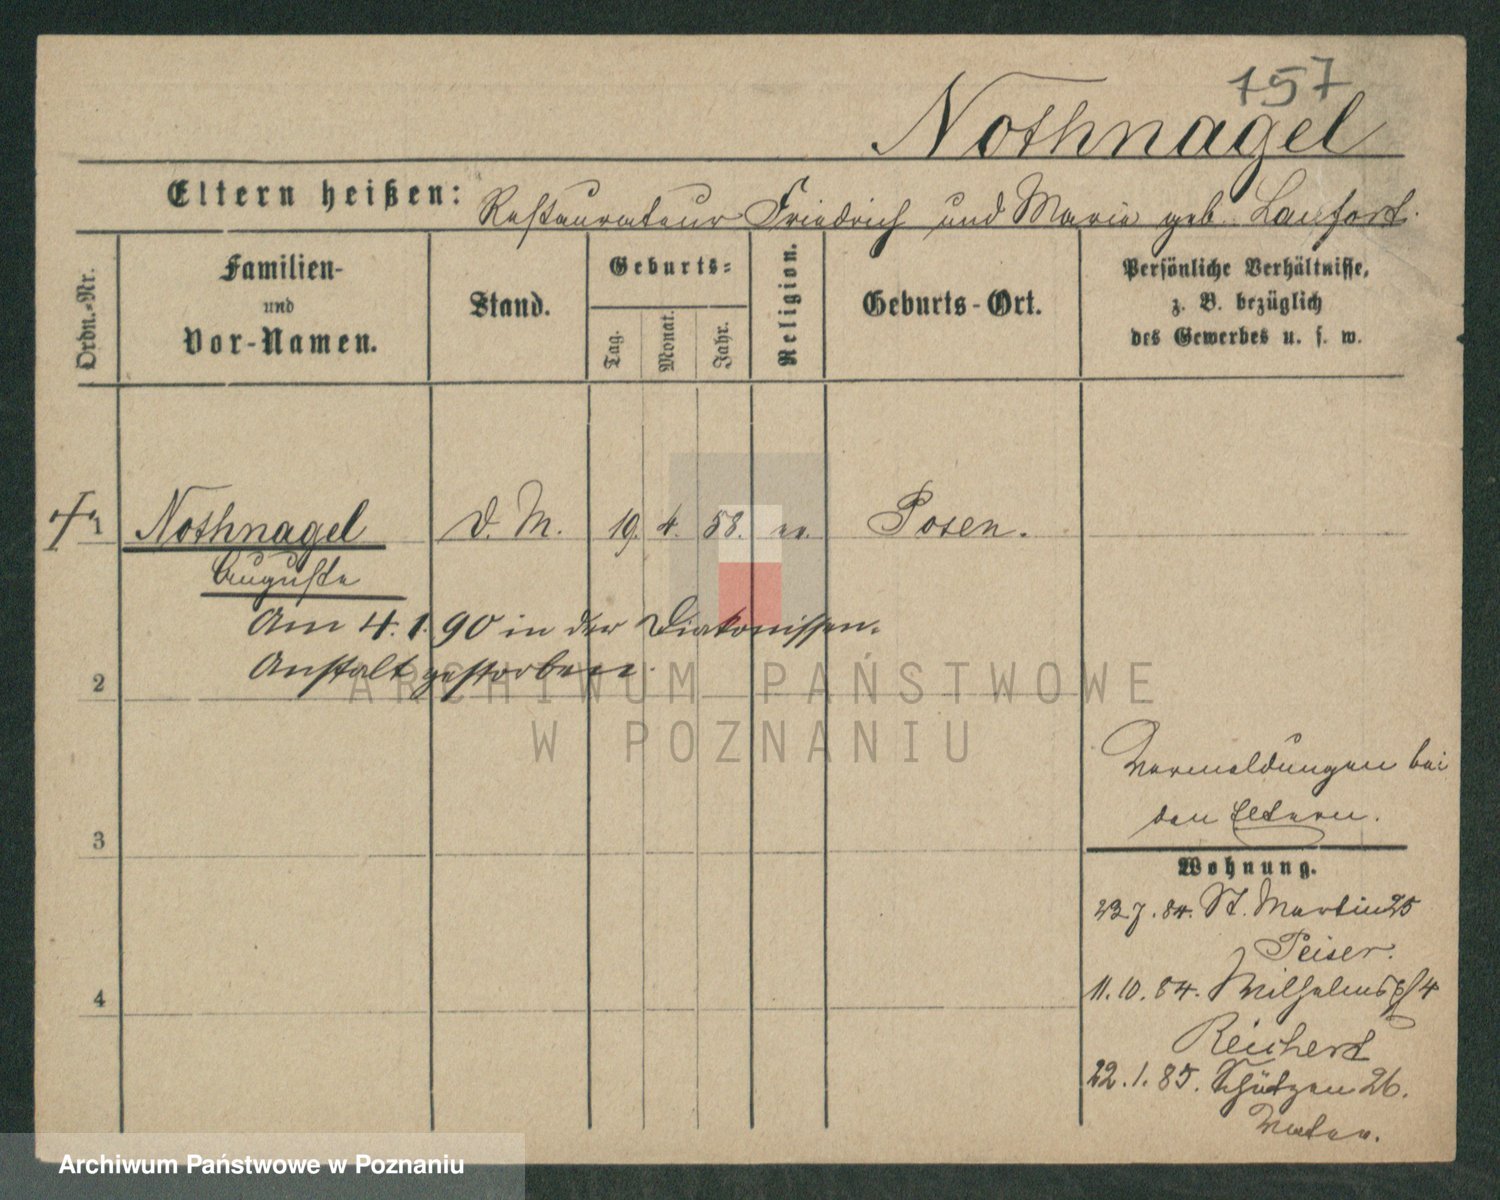 157
Nothnagel
Eltern heißen: Restaurateur Friedrich und Marie geb. Laufert.
Ordn.-Nr.
Familien-
und
Vor-Namen.
Stand.
Geburts-
Tag.
Monat.
Jahr.
Religion.
Geburts-Ort.
Persönliche Verhältnisse,
z. B. bezüglich
des Gewerbes u. s. w.
1 Nothnagel D. M. 19. 4. 58. ev. Posen.
Auguste
Am 4.1.90 in der Diakonissen-
Anstalt gestorben.
2
ARCHIWUM PAŃSTWOWE
W POZNANIU
Vermeldungen bei
den Eltern.
3
Wohnung.
23.7.84. St. Martin 25
Peiser.
4
11.10.84. Wilhelmspl 4
Reichert
22.1.85. Schützen 26.
Vater.
Archiwum Państwowe w Poznaniu